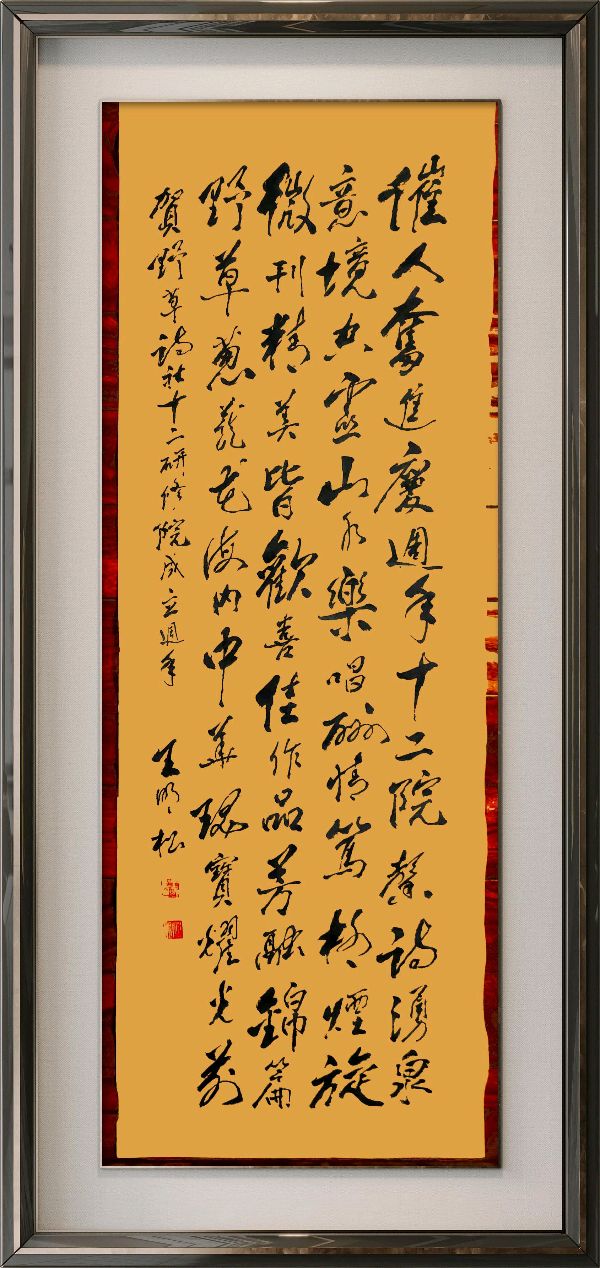 催人奮進慶週年十二院馨詩湧泉
意境空靈山水樂唱酬情篤煙旋
微刊精美皆歡喜佳作品芳融錦篇
野草蔥蘢花海內中華瑰寶耀光前
賀野草詩社十二研修院成立週年
王明松